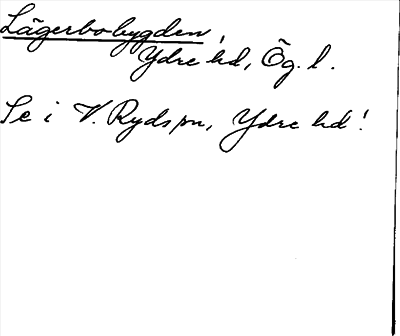 Lägerbobygden,
Ydre hd, Ög. l.
Se i V. Ryds sn, Ydre hd!